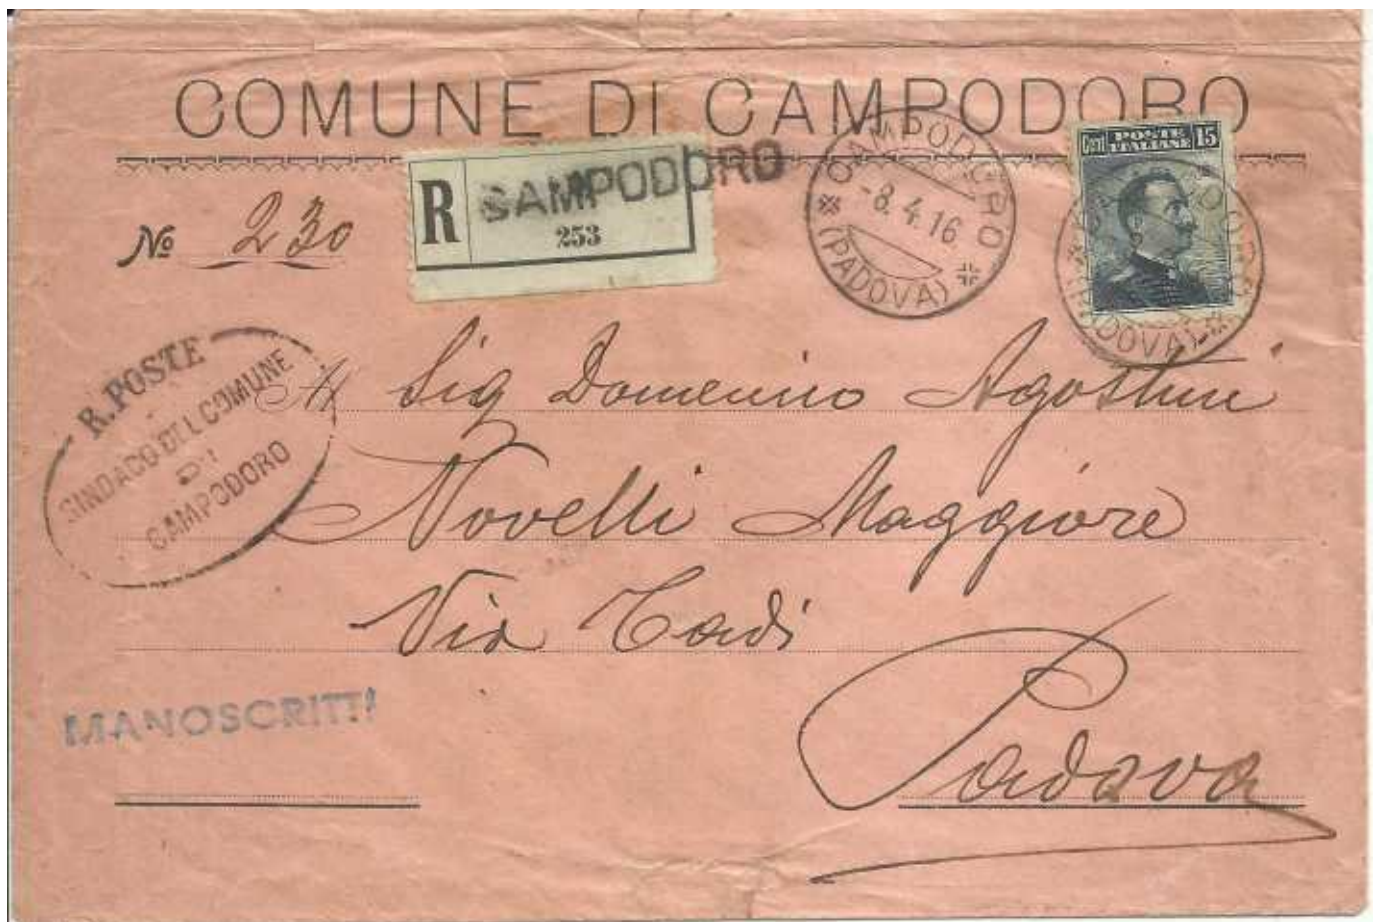 COMUNE DI CAMPODORO
Nº 230
R CAMPODORO
253
CAMPODORO
-8.4.16
(PADOVA)
Cent POSTE ITALIANE 15
CAMPODORO
(PADOVA)
R. POSTE
SINDACO DEL COMUNE
DI
CAMPODORO
Sig Domenico Agostini
Novelli Maggiore
Via Tadi
MANOSCRITTI
Padova